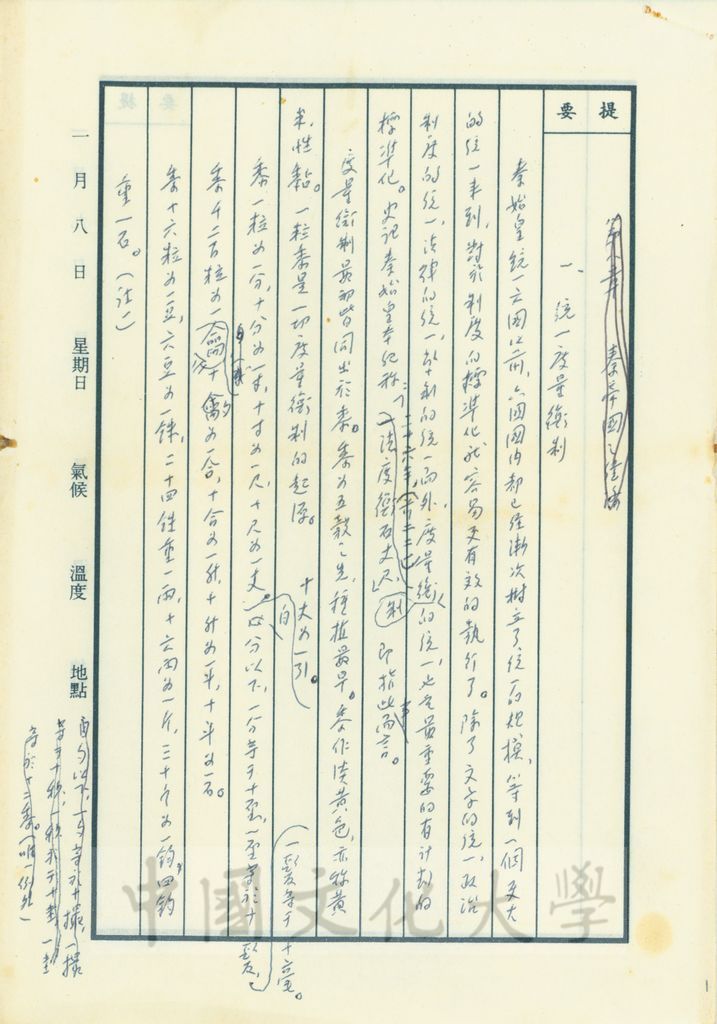 提要
第六章 秦帝國之建設
一、統一度量衡制
秦始皇統一六國以前，六國國內都已經漸次樹立了統一的規模，等到一個更大
的統一來到，對於制度的標準化就容易更有效的執行了。除了文字的統一，政治
制度的統一，法律的統一，幣制的統一而外，度量衡的統一也是最重要的有計劃的
標準化。史記秦始皇本紀稱：「二十六年（前二二一）「法度衡石丈尺」制 即指此事而言。
度量衡制最初皆同出於黍。黍為五穀之先，種植最早。黍作淡黃色，亦稱黃
米，性黏。一粒黍是一切度量衡制的起源。
十丈為一引。
黍一粒為一分，十分為一寸，十寸為一尺，十尺為一丈。自分以下，一分等于十釐，一釐等於十毫，
一髮等于十毫。
黍千二百粒為一龠，十龠為一合，十合為一升，十升為一斗，十斗為一石。
黍十六粒為一豆，六豆為一銖，二十四銖重一兩，十六兩為一斤，三十斤為一鈞，四鈞
重一石。（註一）
自勺以下，一勺等於十撮，一撮
等于十抄，一抄等于十圭，一圭
等於十二黍。（唯一例外）
一月八日 星期日 氣候 溫度 地點
中國文化大學